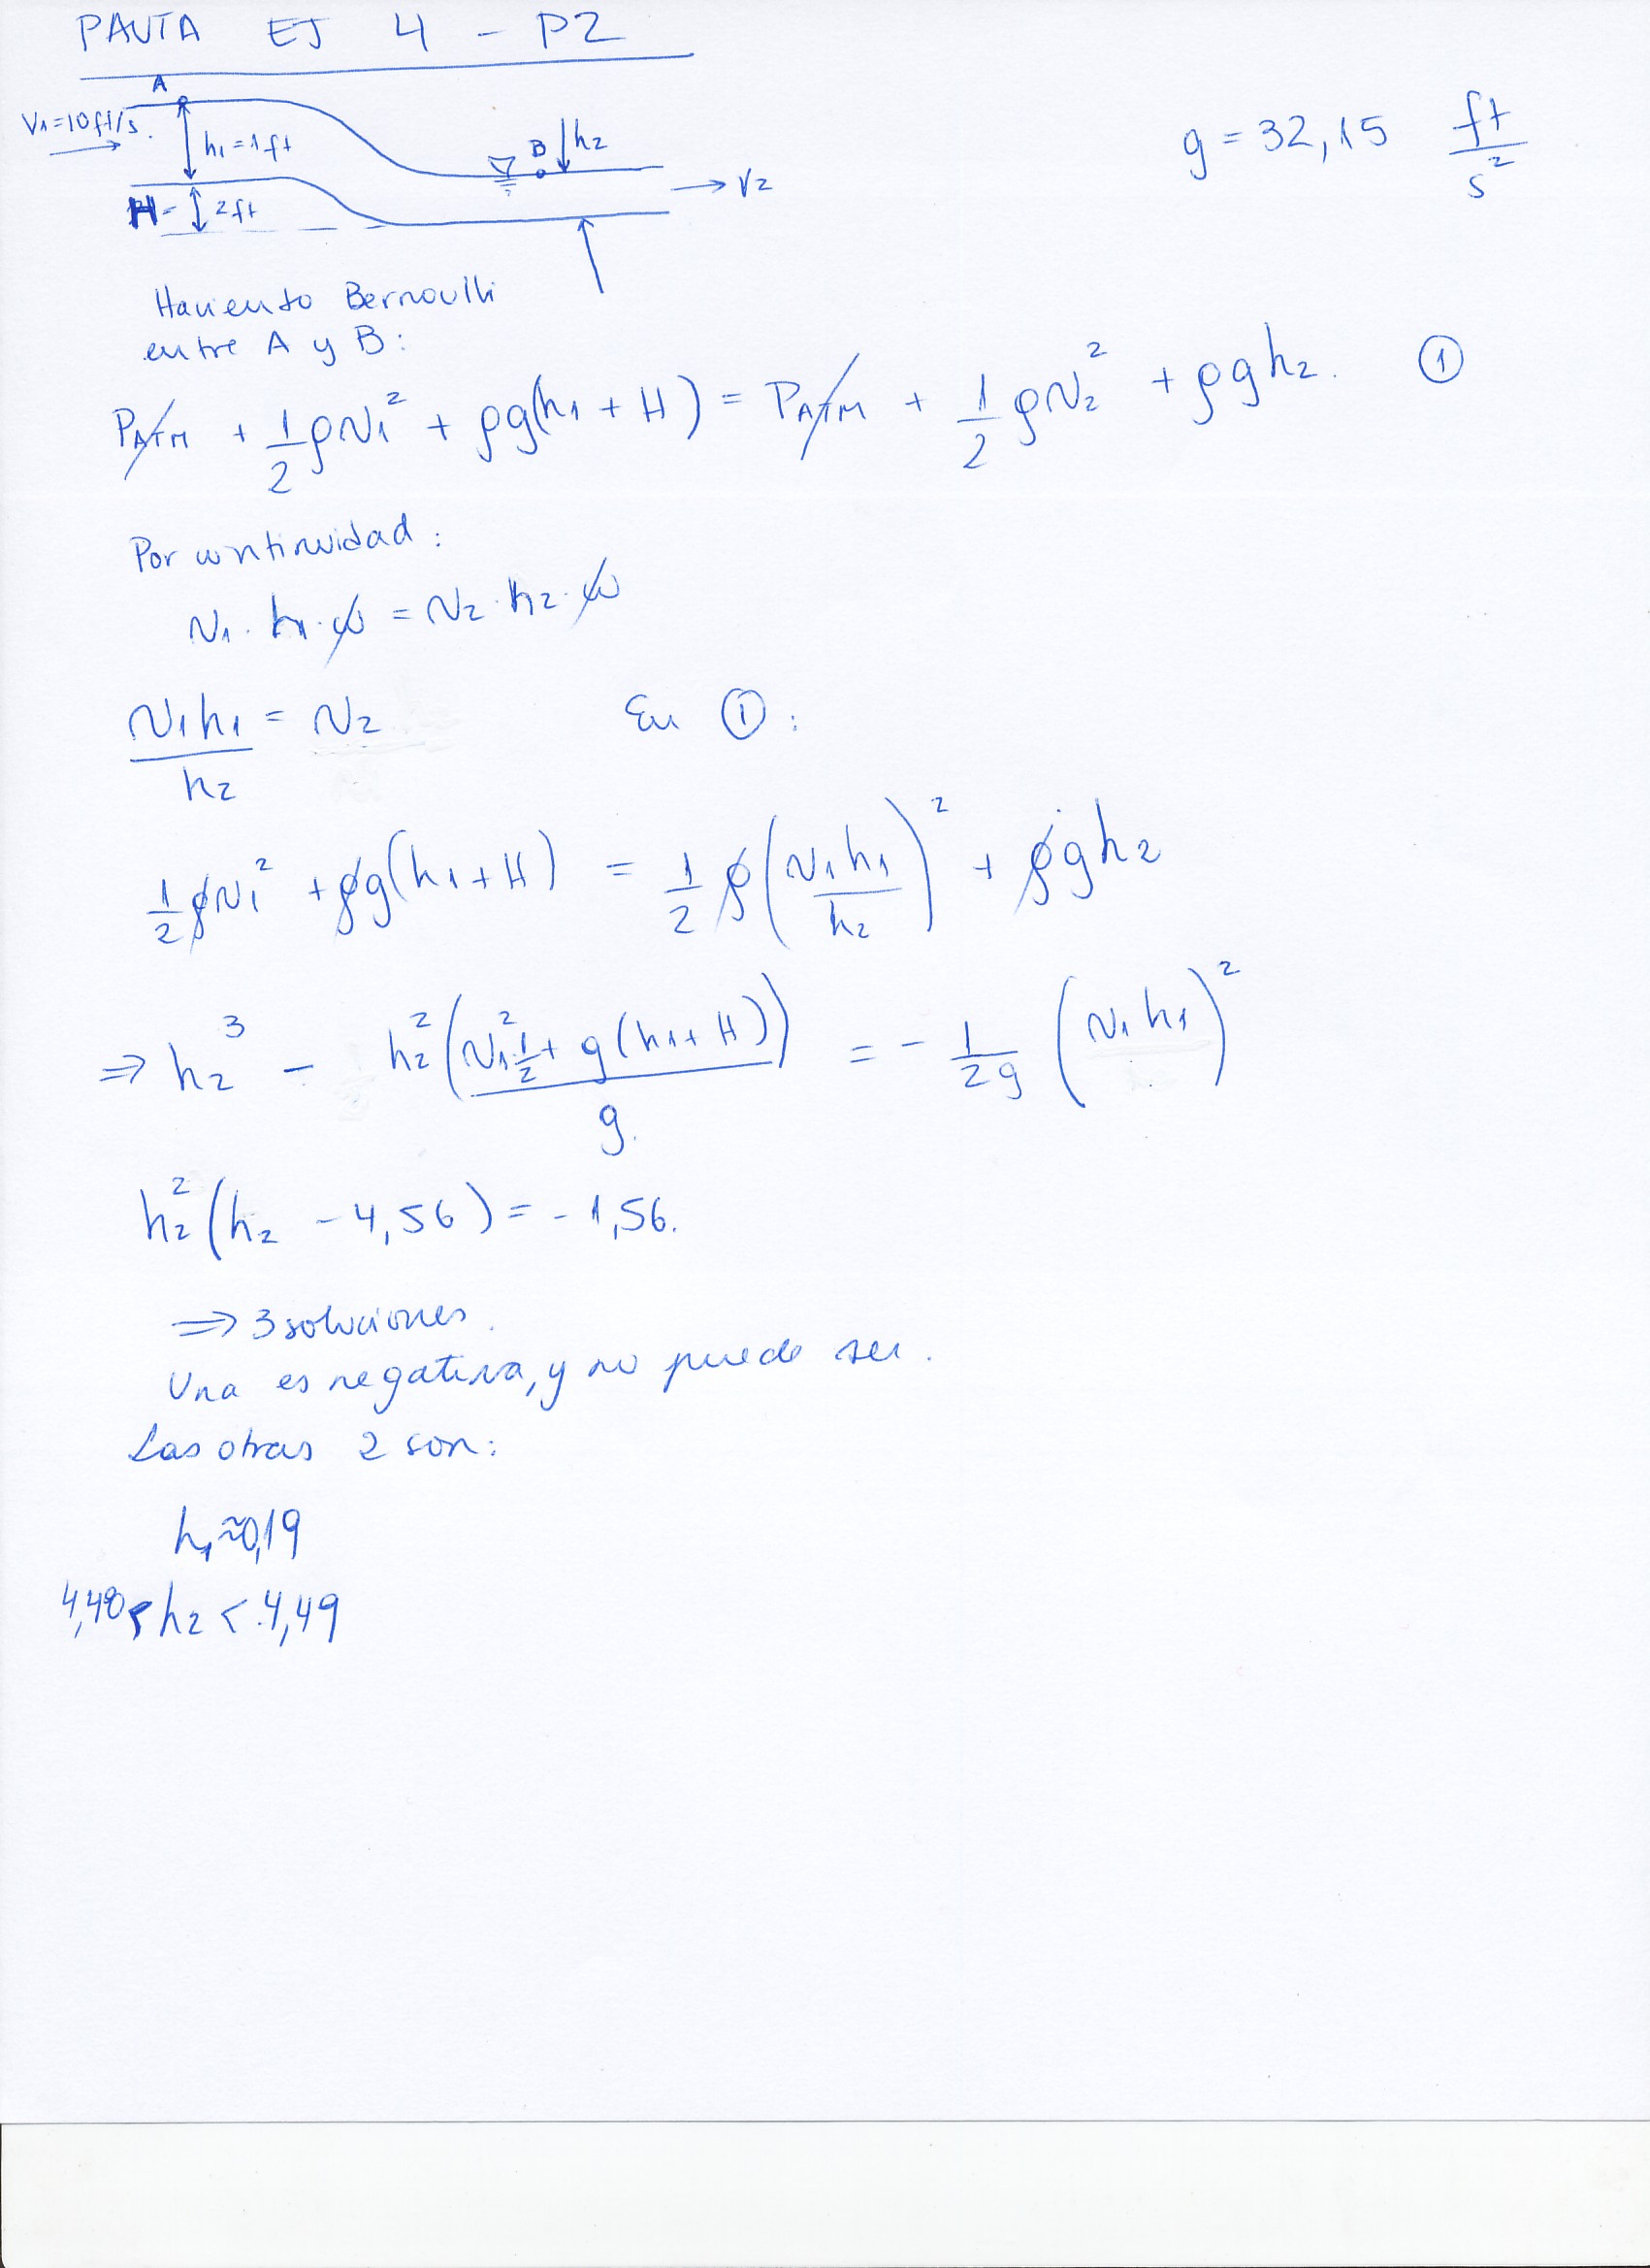 PAUTA EJ 4 - P2
A
V1=10ft/s.
h1=1ft
B
h2
V2
H= 2ft
g = 32,15 ft/s²
Haciento Bernoulli
entre A y B:
PATM + 1/2 ρv1² + ρg(h1 + H) = PATM + 1/2 ρv2² + ρgh2. ①
Por continuidad:
v1 · h1 · ω = v2 · h2 · ω
v1h1/h2 = v2 En ①:
1/2 ρv1² + ρg(h1+H) = 1/2 ρ(v1h1/h2)² + ρgh2
⇒ h2³ - h2²(v1²·1/2 + g(h1+H))/g. = - 1/2g (v1h1)²
h2²(h2 - 4,56) = -1,56.
⇒ 3 soluciones.
Una es negativa, y no puede ser.
Las otras 2 son:
h1≈0,19
4,48< h2 < 4,49